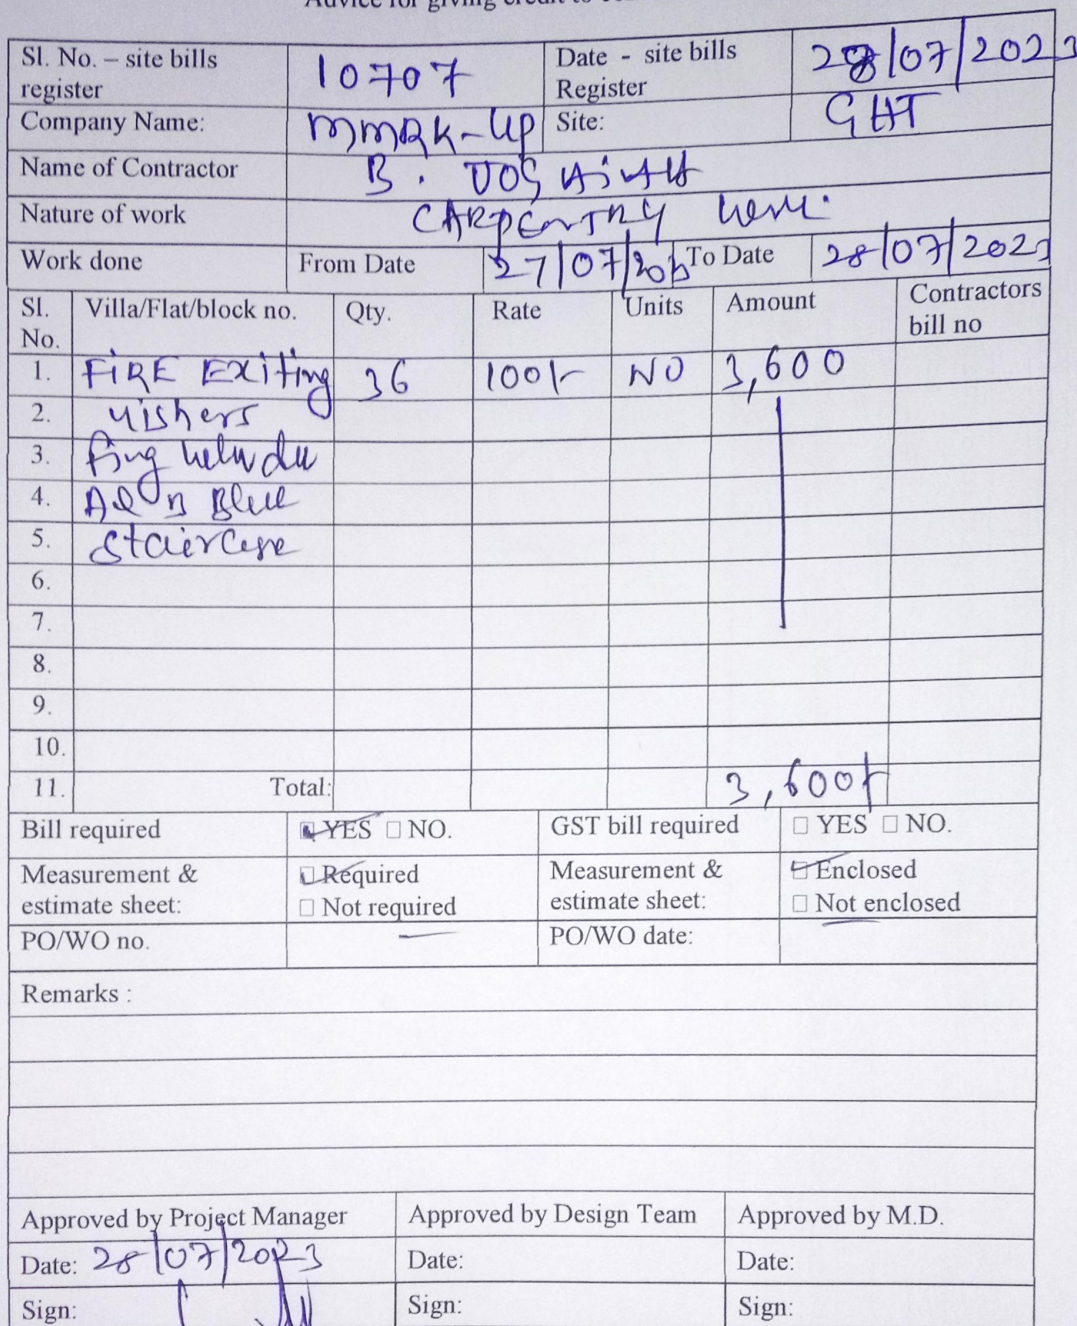 Advice for giving credit to
Sl. No. – site bills register 10707 Date - site bills Register 28/07/2023
Company Name: MMRK-UP Site: GHT
Name of Contractor B.
Nature of work CARPENTRY
Work done From Date 27/07/20 To Date 28/07/2023
Sl. No. Villa/Flat/block no. Qty. Rate Units Amount Contractors bill no
1. FIRE EXiting 36 100/- NO 3,600
2. uishers
3.
4. Blue
5. Staircase
6.
7.
8.
9.
10.
11. Total: 3,600/-
Bill required YES NO. GST bill required YES NO.
Measurement & estimate sheet: Required Not required Measurement & estimate sheet: Enclosed Not enclosed
PO/WO no. PO/WO date:
Remarks :
Approved by Project Manager Approved by Design Team Approved by M.D.
Date: 28/07/2023 Date: Date:
Sign: Sign: Sign: